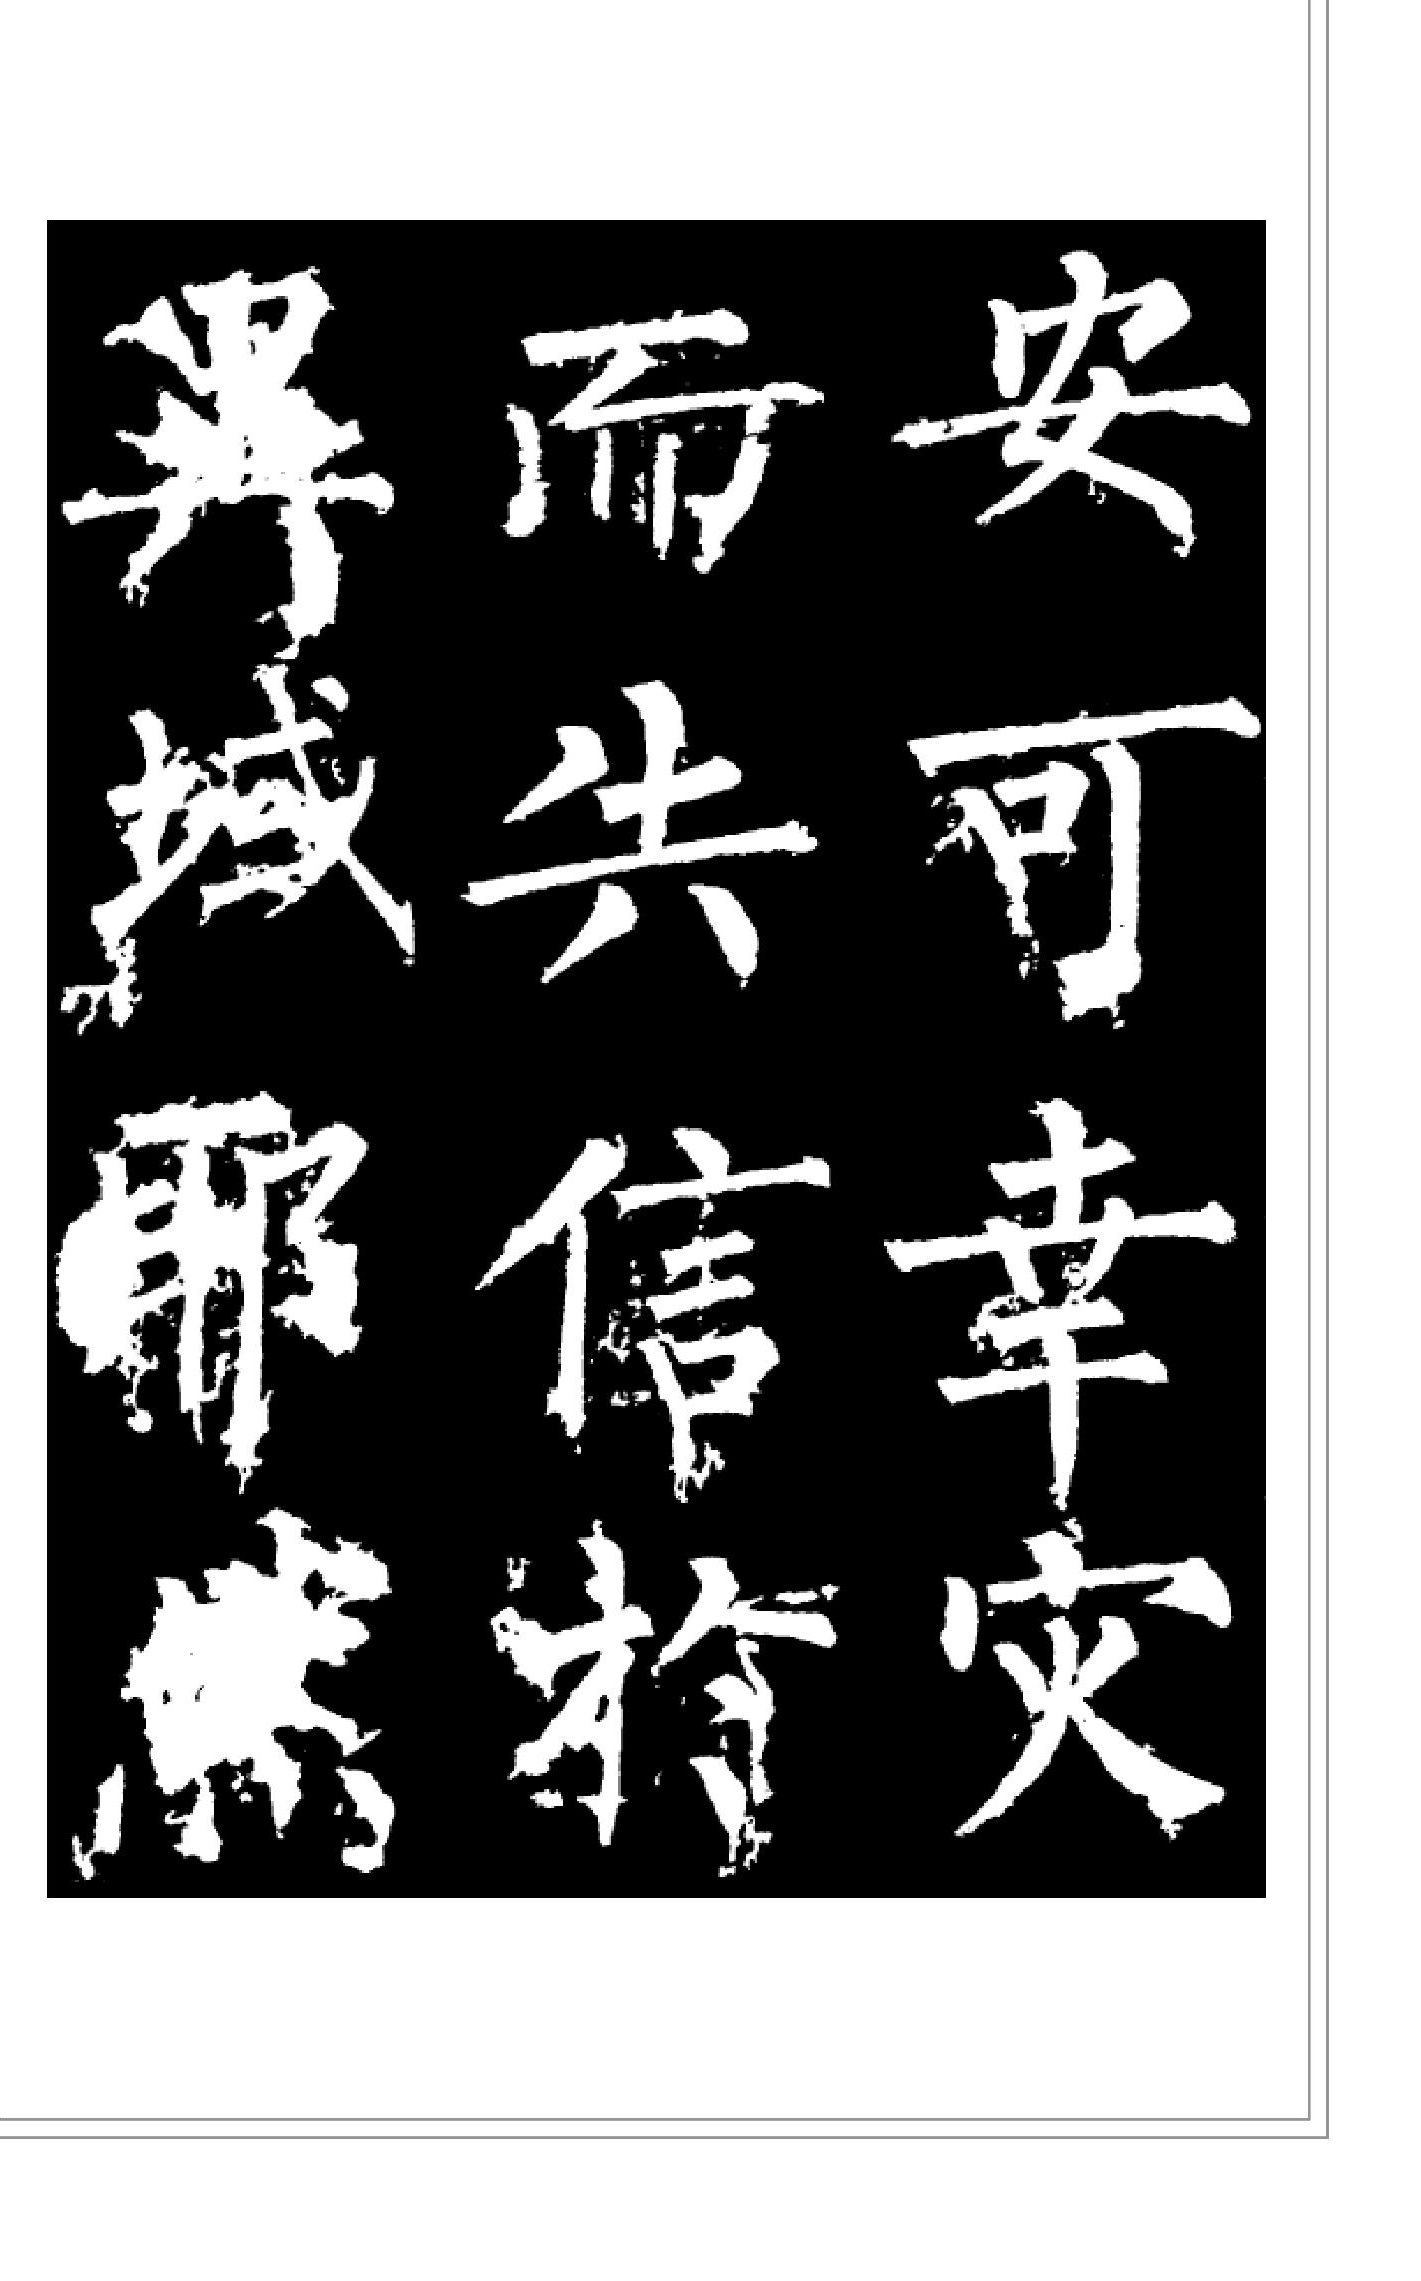 安可幸灾
而失信於
異域耶